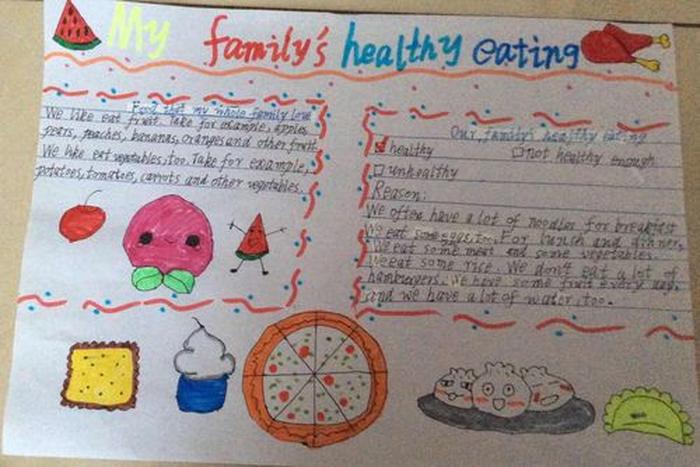 My family's healthy eating
Food that my whole family love
We like eat fruit. Take for example, apples,
pears, peaches, bananas, oranges and other fruit.
We like eat vegetables, too. Take for example,
potatoes, tomatoes, carrots and other vegetables.
Our family's healthy eating
healthy not healthy enough
unhealthy
Reason:
We often have a lot of noodles for breakfast
We eat some eggs, too. For lunch and dinner,
We eat some meat and some vegetables.
We eat some rice. We don't eat a lot of
hamburgers. We have some fruit every day,
and we have a lot of water, too.